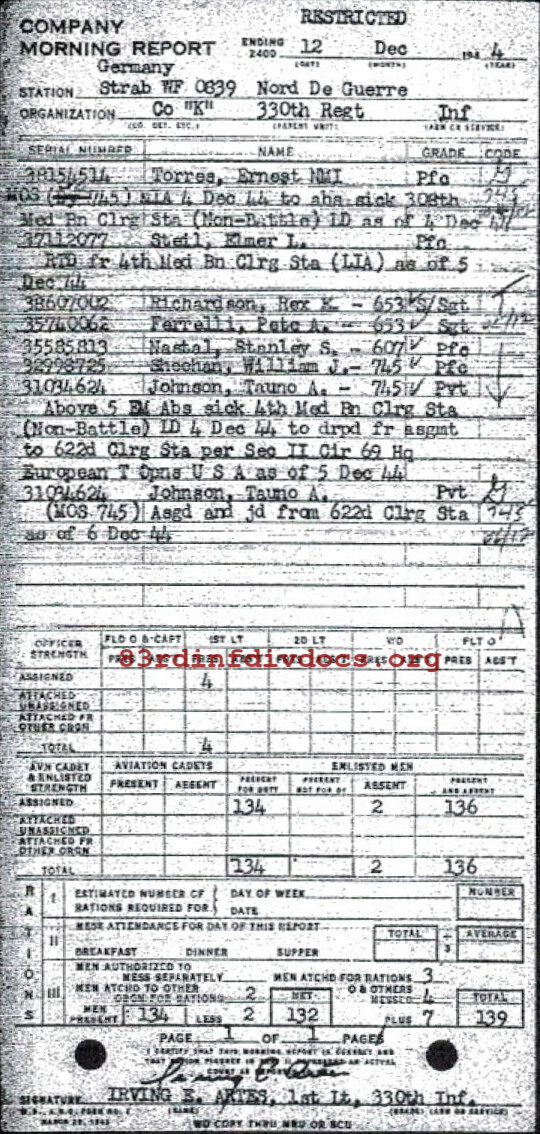 RESTRICTED
COMPANY
MORNING REPORT ENDING 2400 12 Dec 1944
(DAY) (MONTH) (YEAR)
Germany
STATION Strab WF 0839 Nord De Guerre
ORGANIZATION Co "K" 330th Regt Inf
(CO. DET. ETC.) (PARENT UNIT) (ARM OR SERVICE)
SERIAL NUMBER NAME GRADE CODE
38154514 Torres, Ernest NMI Pfc
MOS (745) MIA 4 Dec 44 to abs sick 308th
Med Bn Clrg Sta (Non-Battle) LD as of 4 Dec 44
37112077 Steil, Elmer L. Pfc
RTD fr 4th Med Bn Clrg Sta (LIA) as of 5
Dec 44
38607002 Richardson, Rex K. - 653 S/Sgt
35740062 Ferrelli, Pete A. - 653 Sgt
35585813 Nastal, Stanley S. - 607 Pfc
32998725 Sheehan, William J.- 745 Pfc
31034624 Johnson, Tauno A. - 745 Pvt
Above 5 EM Abs sick 4th Med Bn Clrg Sta
(Non-Battle) LD 4 Dec 44 to drpd fr asgmt
to 622d Clrg Sta per Sec II Cir 69 Hq
European T Opns U S A as of 5 Dec 44
31034624 Johnson, Tauno A. Pvt
(MOS 745) Asgd and jd from 622d Clrg Sta 745
as of 6 Dec 44
OFFICER STRENGTH FLD O & CAPT 1ST LT 2D LT WO FLT O
83rdinfdivdocs.org
PRES ABS'T
ASSIGNED 4
ATTACHED UNASSIGNED
ATTACHED FR OTHER ORGN
TOTAL 4
AVN CADET & ENLISTED STRENGTH AVIATION CADETS ENLISTED MEN
PRESENT ABSENT PRESENT FOR DUTY PRESENT NOT FOR DY ABSENT PRESENT AND ABSENT
ASSIGNED 134 2 136
ATTACHED UNASSIGNED
ATTACHED FR OTHER ORGN
TOTAL 134 2 136
RATIONS
I ESTIMATED NUMBER OF RATIONS REQUIRED FOR DAY OF WEEK NUMBER
DATE
II MESS ATTENDANCE FOR DAY OF THIS REPORT TOTAL ÷ 3 AVERAGE
BREAKFAST DINNER SUPPER
III MEN AUTHORIZED TO MESS SEPARATELY MEN ATCHD FOR RATIONS 3
MEN ATCHD TO OTHER ORGN FOR RATIONS 2 NET O & OTHERS MESSED 4 TOTAL
MEN PRESENT 134 LESS 2 132 PLUS 7 139
PAGE 1 OF 1 PAGES
I CERTIFY THAT THIS MORNING REPORT IS CORRECT AND
SIGNATURE IRVING E. ARTES, 1st Lt, 330th Inf.
(NAME) (GRADE) (ARM OR SERVICE)
W.D., A.G.O. FORM NO. 1
MARCH 20, 1943
WD COPY THRU MRU OR SCU